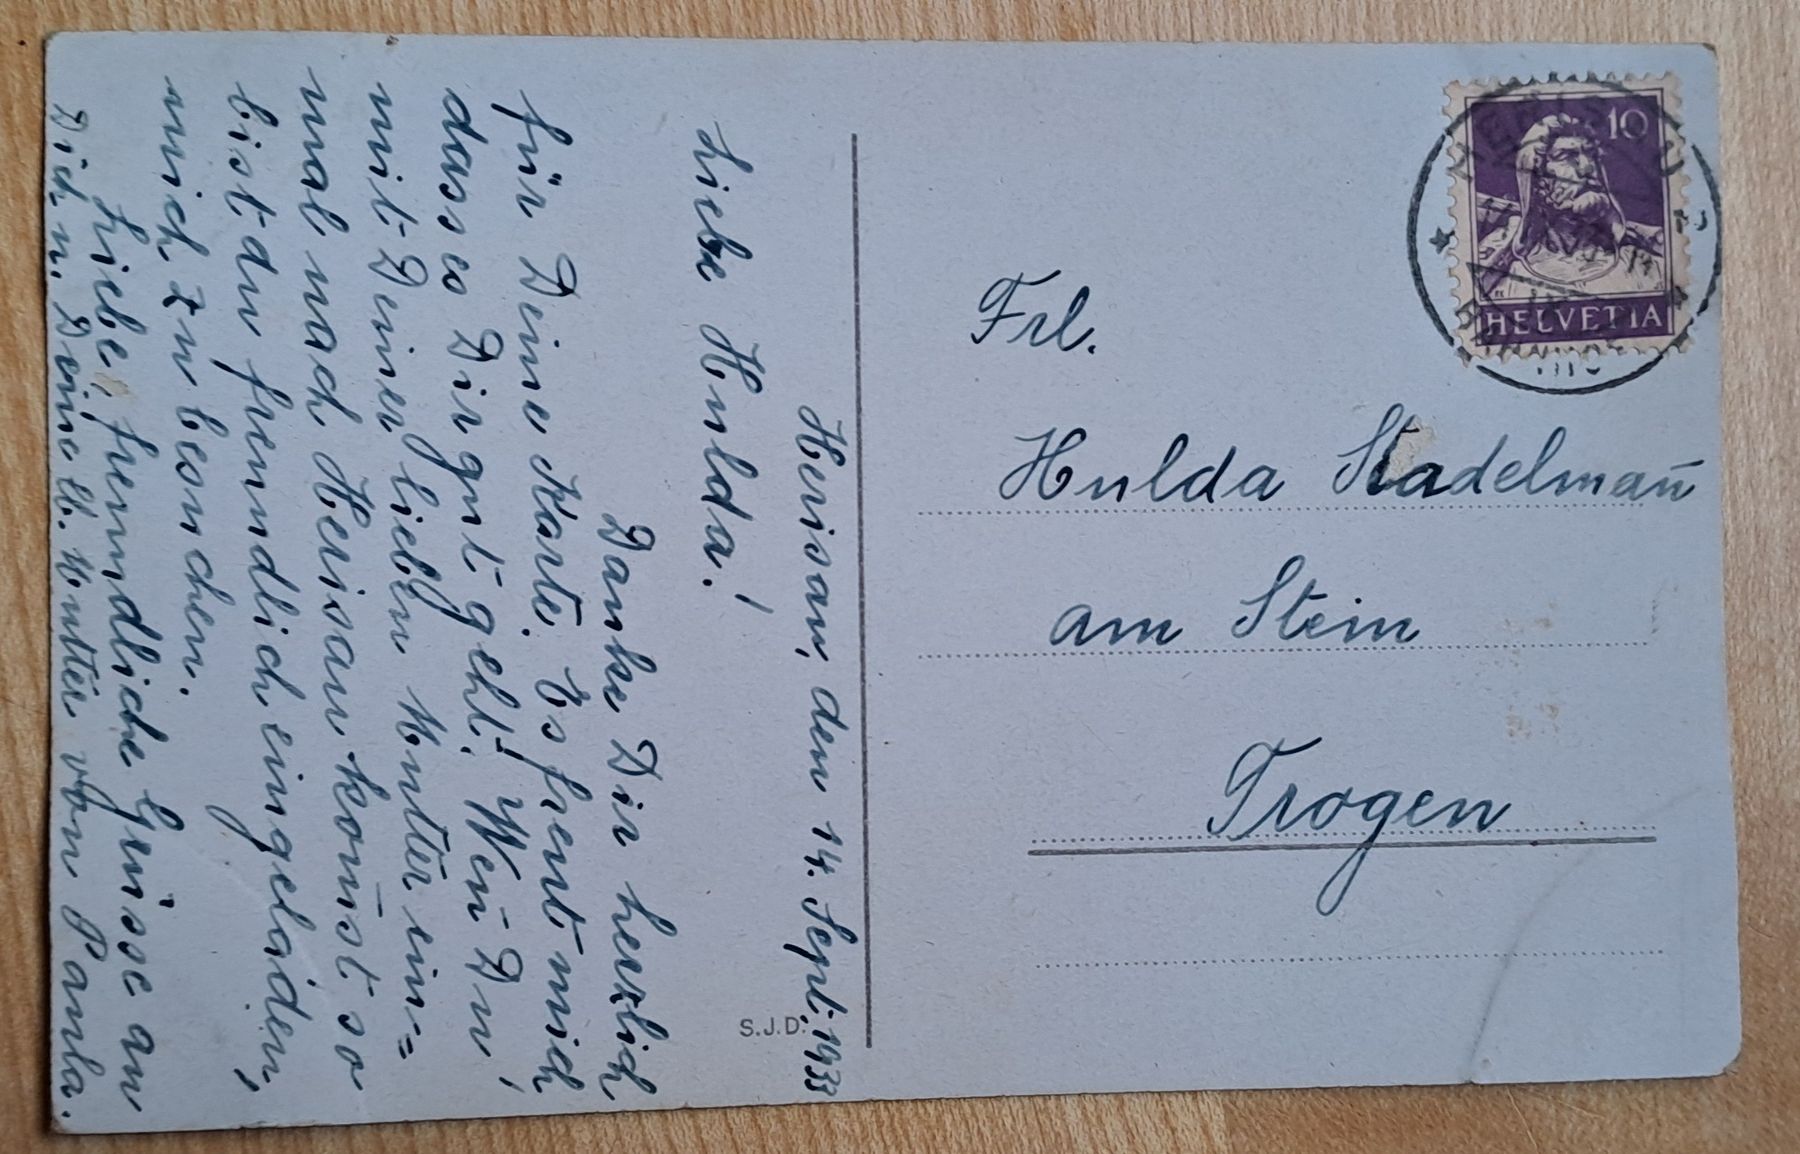 Herisau, den 14. Sept. 1933
Liebe Hulda!
Danke Dir herzlich
für Deine Karte. Es freut mich
dass es Dir gut geht. Wen̄ Du
mit Deiner lieben Mutter ein=
mal nach Herisau kom̄st so
bist du freundlich eingeladen,
mich zu besuchen.
Liebe, freundliche Grüsse an
Dich u. Deine lb. Mutter von Paula.
S.J.D.
10
HELVETIA
Frl.
Hulda Stadelman̄
am Stein
Trogen